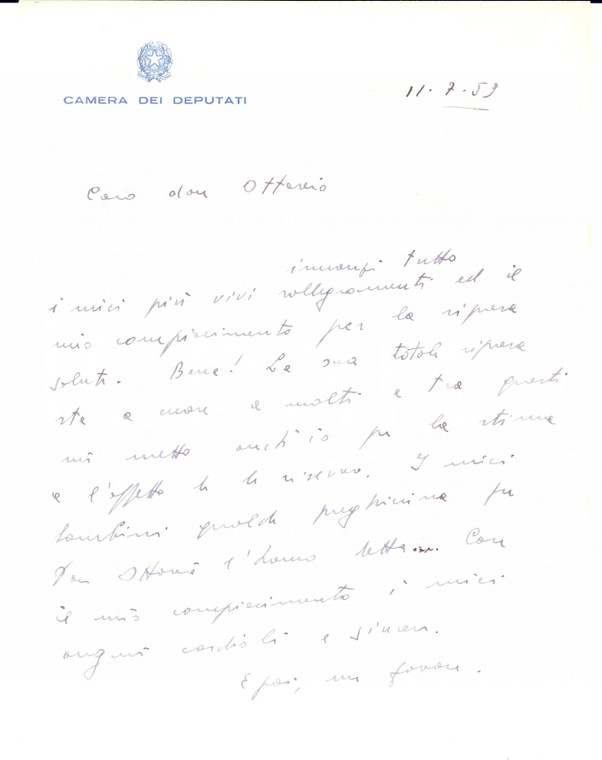 CAMERA DEI DEPUTATI
11.7.59
Caro don Ottavio
innanzi tutto
i miei più vivi rallegramenti ed il
mio compiacimento per la ripresa
salute. Bene! La sua totale ripresa
sta a cuore a molti e tra questi
mi metto anch'io per la stima
e l'affetto che le riservo. I miei
bambini qualche preghierina per
Don Ottavio l'hanno detta... Con
il mio compiacimento i miei
auguri cordiali e sinceri.
E poi, un favore.